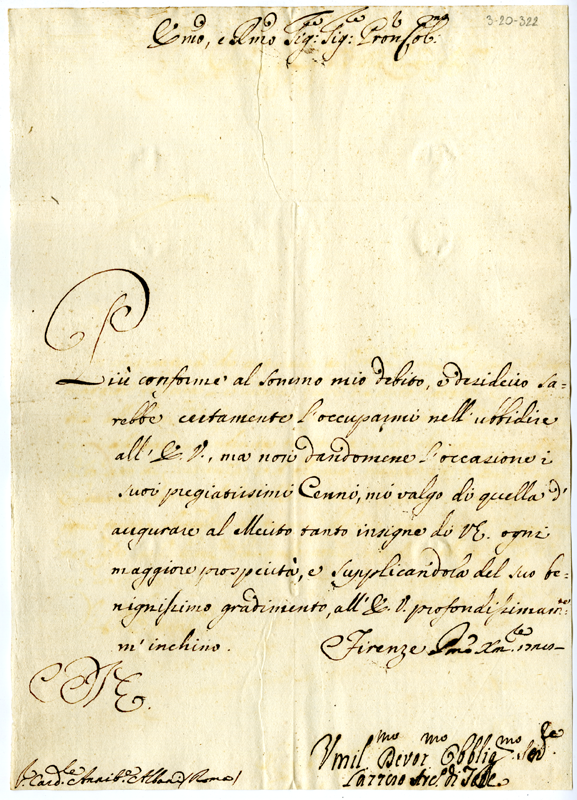 3-20-322
Emo, e Rmo Sig.r Sig.r Pron Col.mo
Più conforme al sommo mio debito, e desiderio sa=
rebbe certamente l'occuparmi nell'ubbidire
all'E. V., ma non dandomene l'occasione i
suoi pregiatissimi Cenni, mi valgo di quella d'
augurare al Merito tanto insigne di VE. ogni
maggiore prosperità, e supplicandola del suo be=
nignissimo gradimento, all'E. V. profondissimam.te
m'inchino. Firenze Pmo Xm.bre
VE.
Umil.mo Devot.mo Obblig.mo Ser.re
Arc.o di
S. Card.le Annib.e Albani Roma